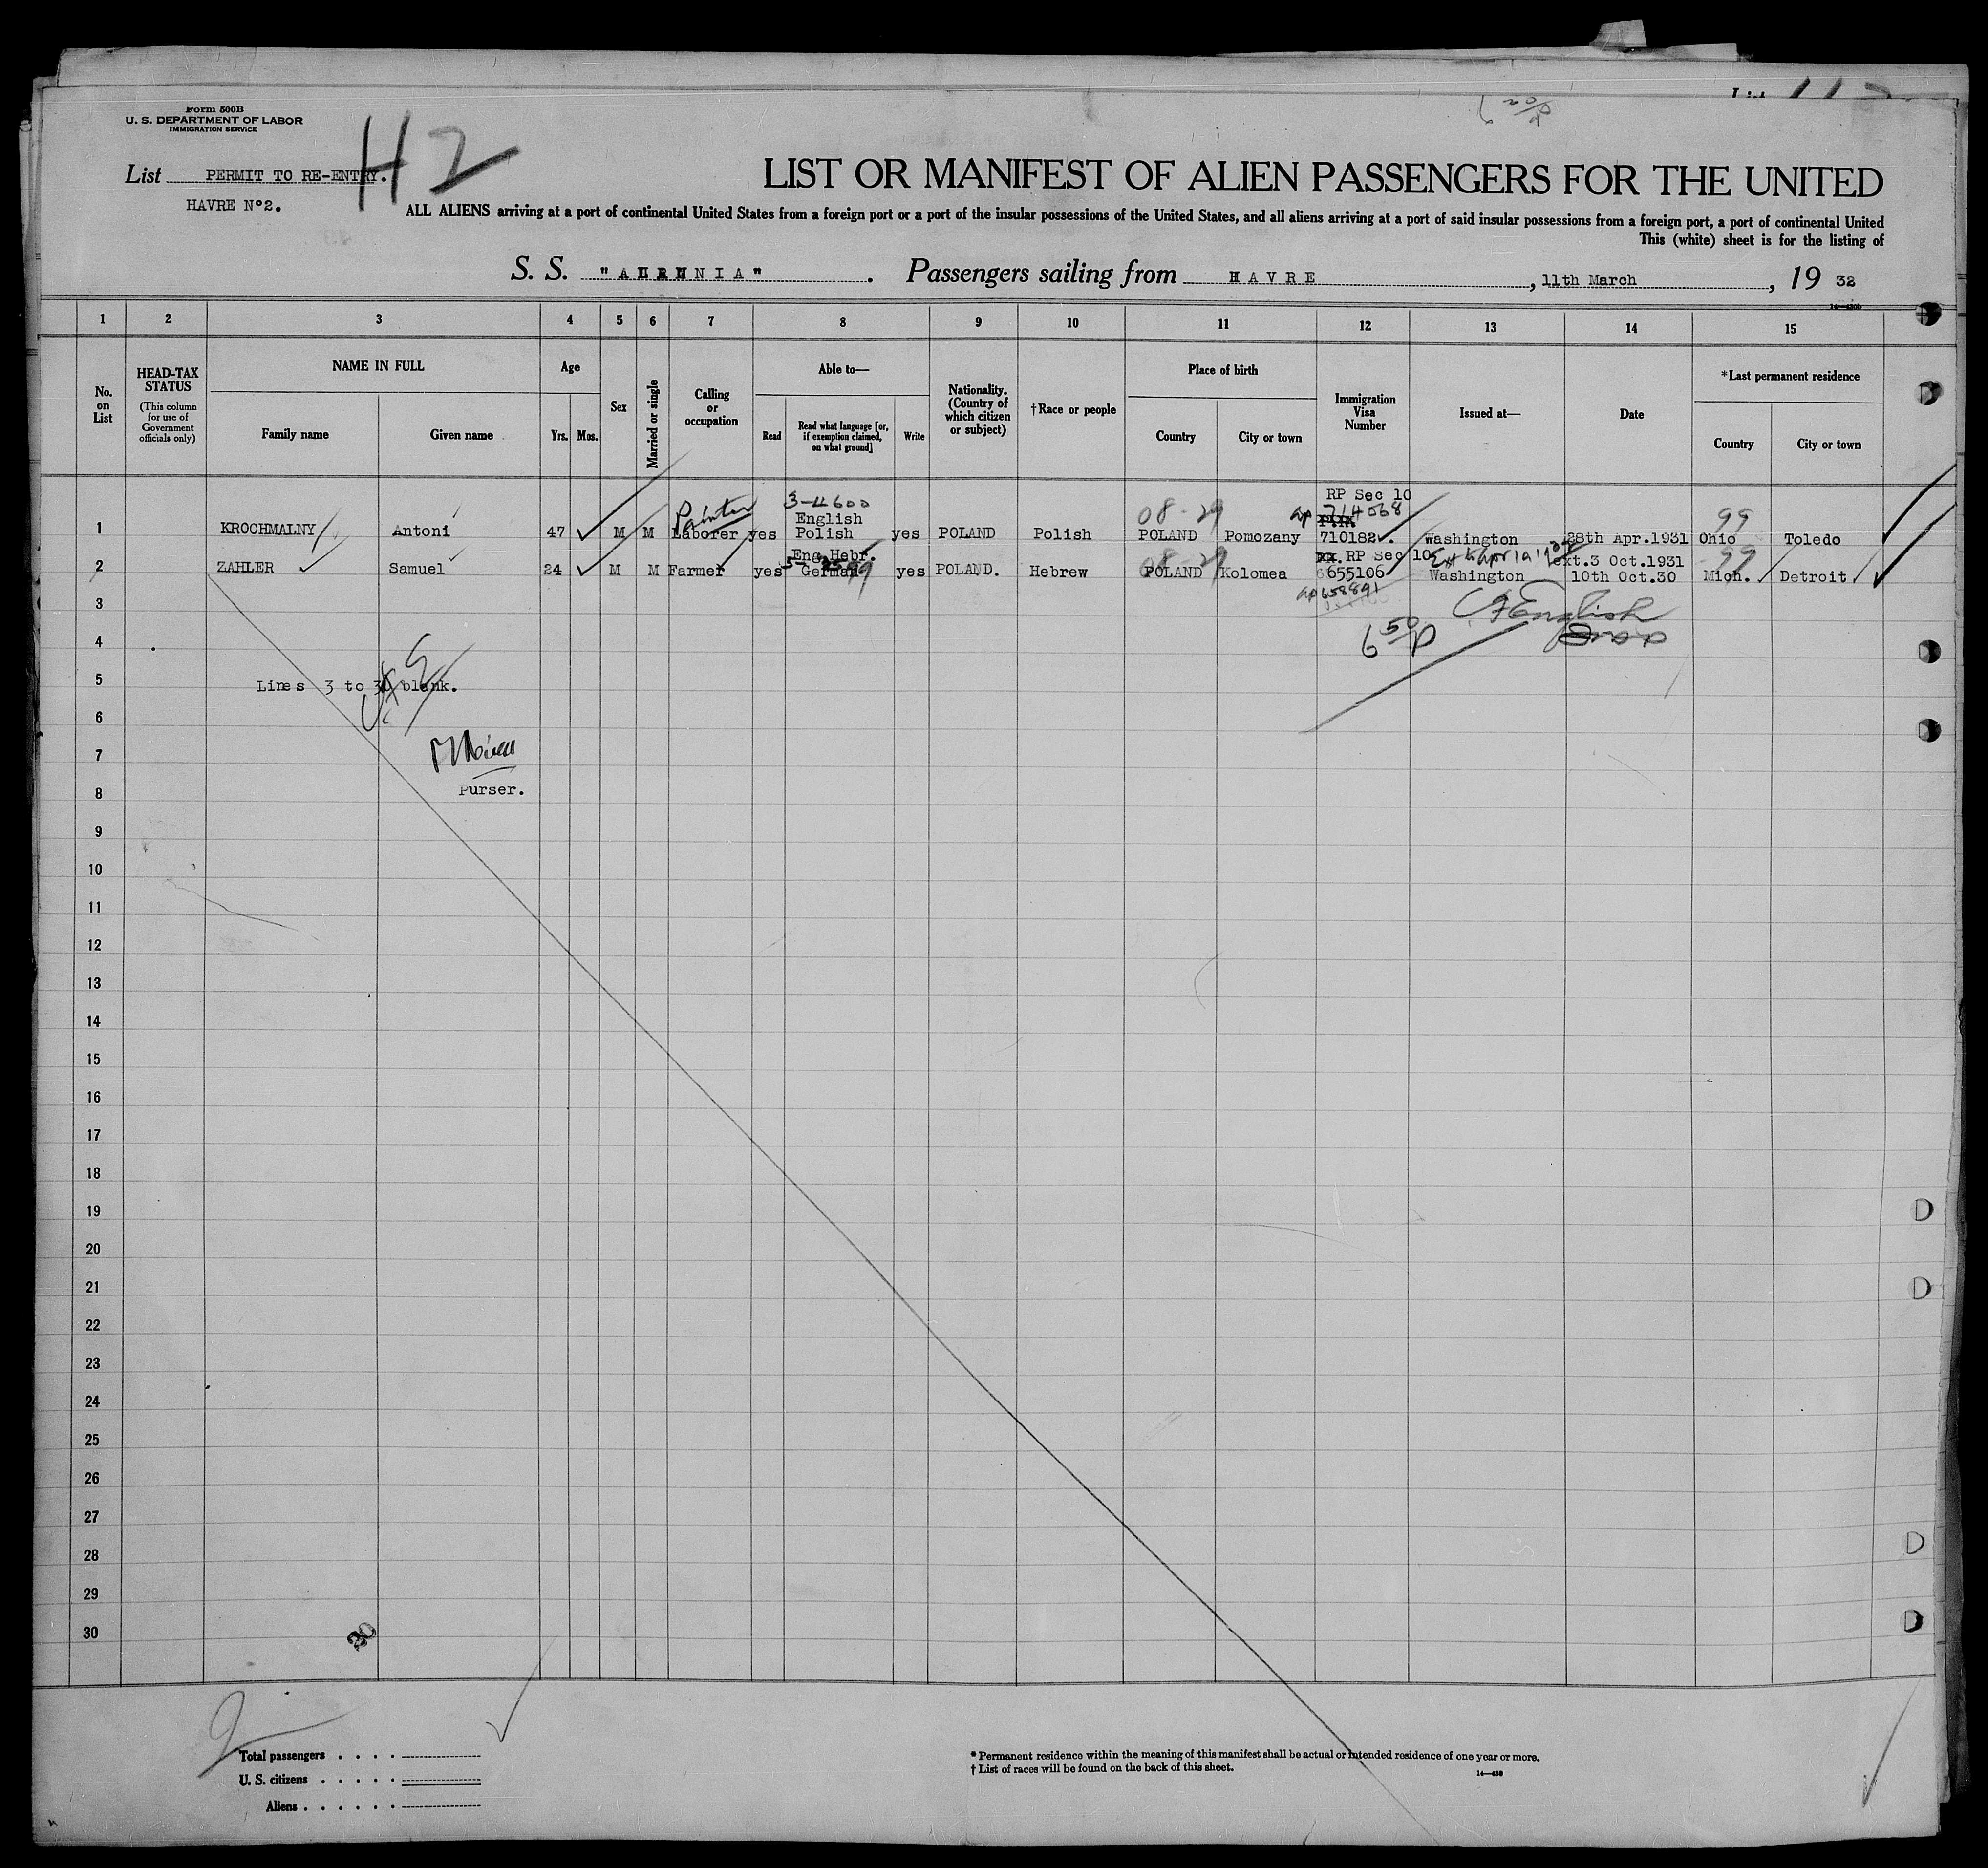 Form 500B
U. S. DEPARTMENT OF LABOR
IMMIGRATION SERVICE
List PERMIT TO RE-ENTRY.
HAVRE Nº2.
H 2
LIST OR MANIFEST OF ALIEN PASSENGERS FOR THE UNITED
ALL ALIENS arriving at a port of continental United States from a foreign port or a port of the insular possessions of the United States, and all aliens arriving at a port of said insular possessions from a foreign port, a port of continental United
This (white) sheet is for the listing of
S. S. "AURUNIA". Passengers sailing from HAVRE, 11th March, 19 32
1 2 3 4 5 6 7 8 9 10 11 12 13 14 15
No. on List
HEAD-TAX STATUS
(This column for use of Government officials only)
NAME IN FULL
Family name Given name
Age
Yrs. Mos.
Sex
Married or single
Calling or occupation
Able to—
Read Read what language [or, if exemption claimed, on what ground] Write
Nationality. (Country of which citizen or subject)
†Race or people
Place of birth
Country City or town
Immigration Visa Number
Issued at—
Date
*Last permanent residence
Country City or town
3-4600 RP Sec 10
Painter English 08-29 ap 714568 99
1 KROCHMALNY Antoni 47 M M Laborer yes Polish yes POLAND Polish POLAND Pomozany 710182. Washington 28th Apr.1931 Ohio Toledo
Eng.Hebr. 08-29 RP Sec 10 ext.3 Oct.1931 99
2 ZAHLER Samuel 24 M M Farmer yes German yes POLAND. Hebrew POLAND Kolomea 655106 Washington 10th Oct.30 Mich. Detroit
ap 658891
3
English
4
6 50 p
5 Lines 3 to 30 blank.
6
7
8 Purser.
9
10
11
12
13
14
15
16
17
18
19
20
21
22
23
24
25
26
27
28
29
30
30
Total passengers . . . .
U. S. citizens . . . . .
Aliens . . . . . .
* Permanent residence within the meaning of this manifest shall be actual or intended residence of one year or more.
† List of races will be found on the back of this sheet.
14—430